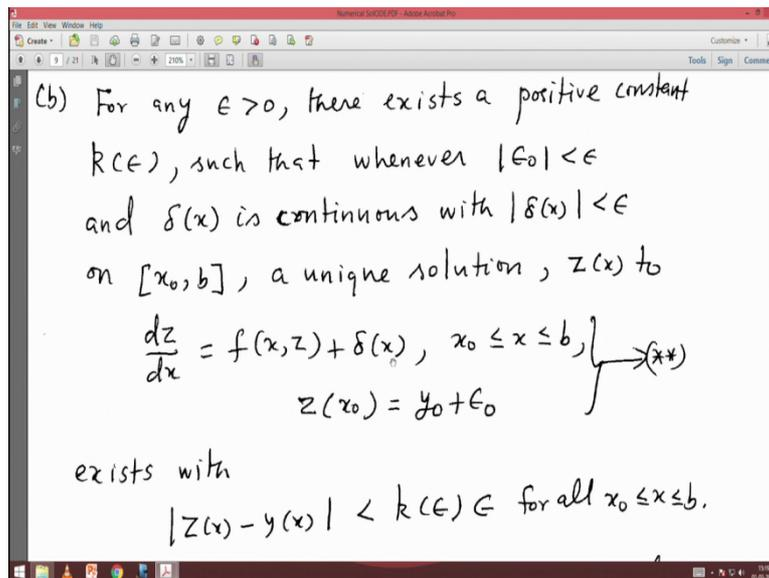 Numerical SolODE.PDF - Adobe Acrobat Pro
File Edit View Window Help
Create Customize
9 / 21 210% Tools Sign Comme
(b) For any ϵ >0, there exists a positive constant
k(ϵ), such that whenever |ϵ₀| < ϵ
and δ(x) is continuous with |δ(x)| < ϵ
on [x₀, b], a unique solution, z(x) to
dz/dx = f(x,z) + δ(x), x₀ ≤ x ≤ b, } → (**)
z(x₀) = y₀ + ϵ₀
exists with
|z(x) - y(x)| < k(ϵ) ϵ for all x₀ ≤ x ≤ b.